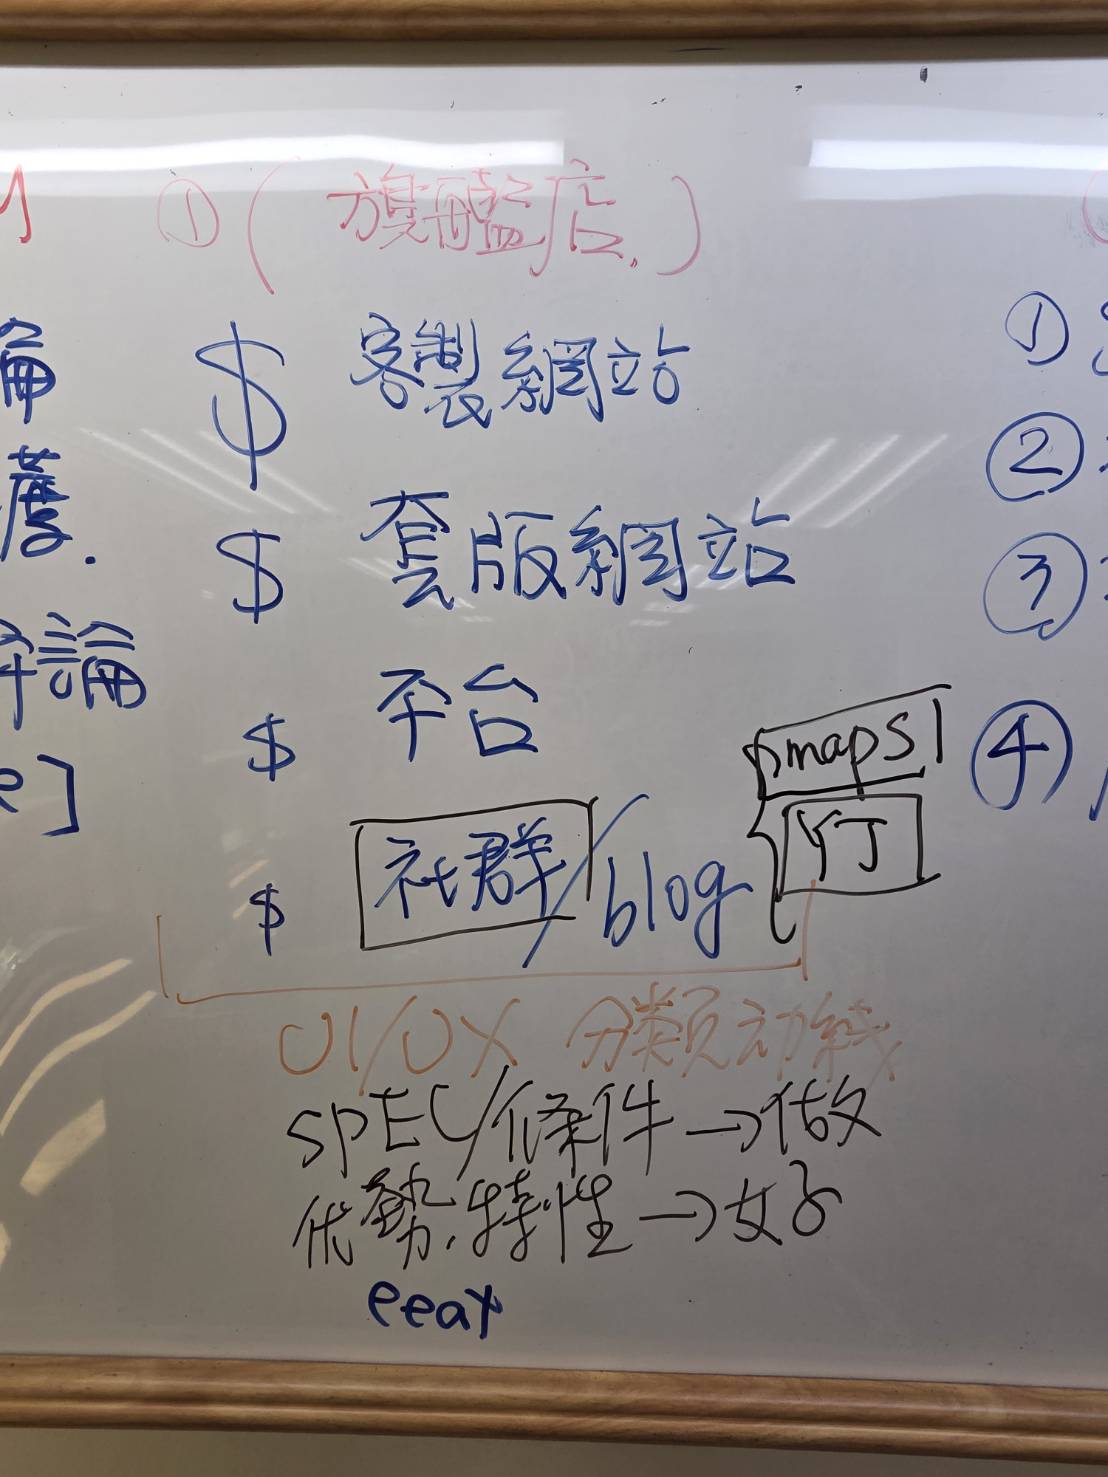 ①(旗艦店.)
$ 客製網站
$ 套版網站
$ 平台
maps
YT
$ 社群/blog
UI/UX 分類動線
SPEC/條件→做
优勢.特性→好
eeat
論
薦.
評論
e]
①
②
③
④